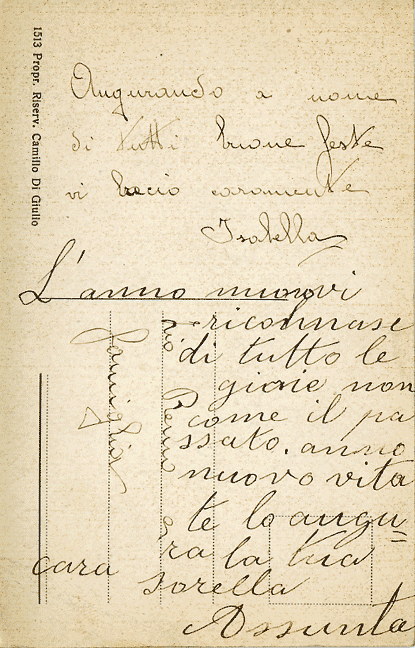 1513 Propr. Riserv. Camillo Di Giulio
Augurando a nome
di tutti buone feste
vi bacio caramente
Isabella
L'anno nuovo vi
riconnase
di tutto le
gioie non
come il pa
ssato. anno
nuovo vita
te lo augu=
ra la tua
cara sorella
Assunta
Famiglia